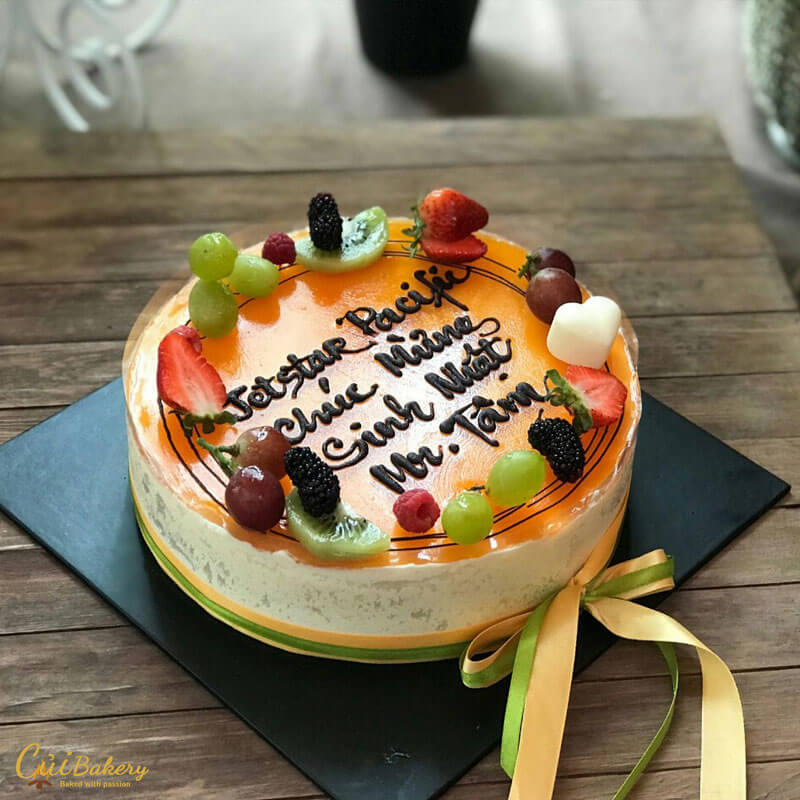 Jetstar Pacific
Chúc Mừng
Sinh Nhất
Mr. Tâm
Củi Bakery
Baked with passion